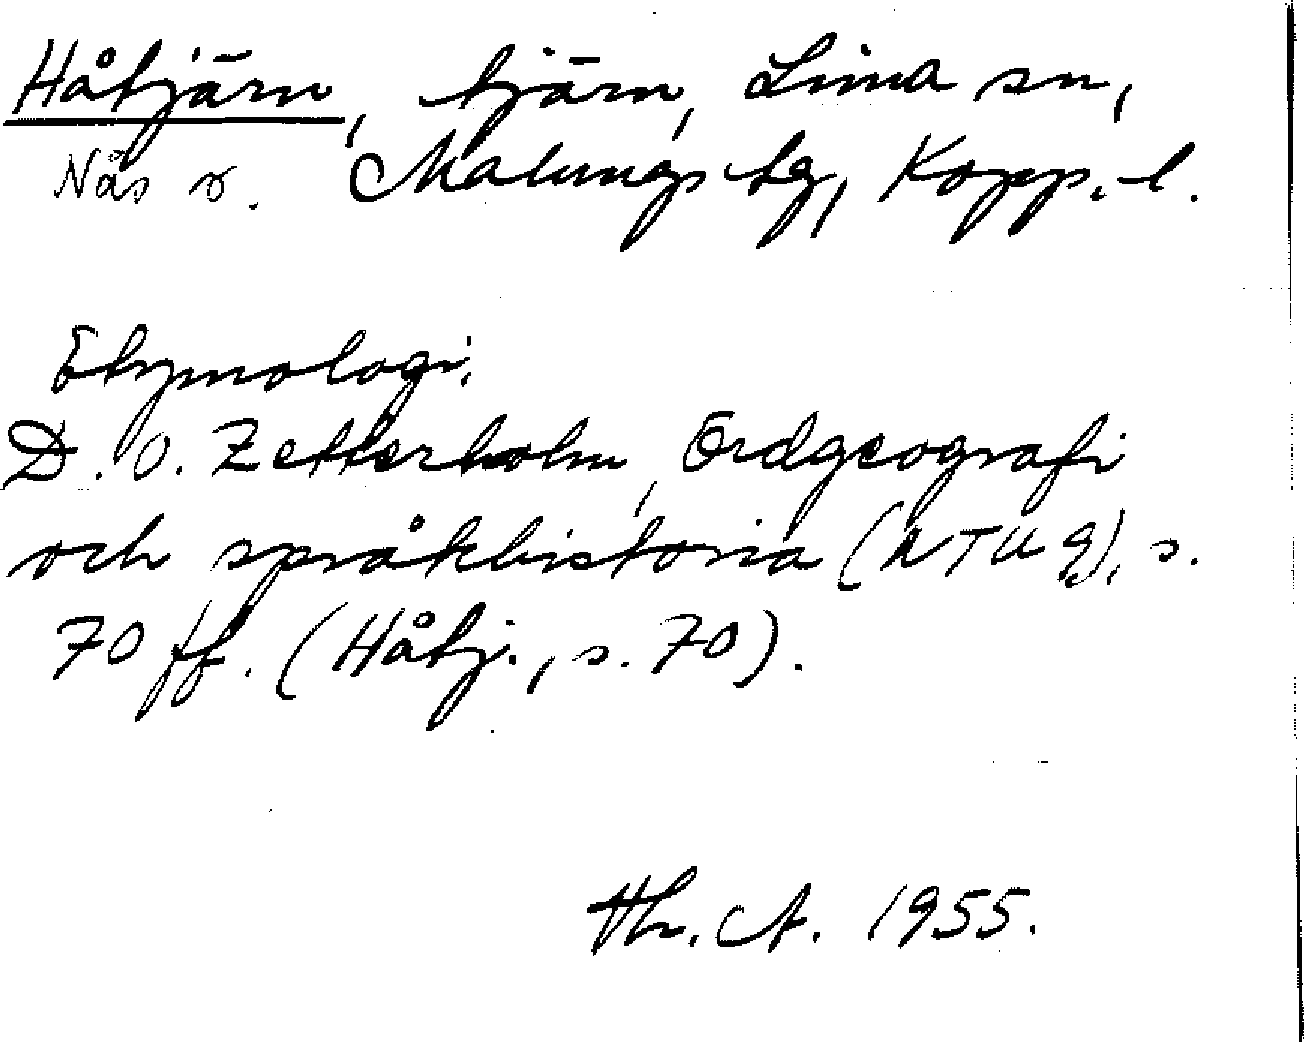 Håtjärn, tjärn, Lima sn,
Nås s. Malungs tg, Kopp. l.
Etymologi.
D. O. Zetterholm, Ordgeografi
och språkhistoria (NTU 9), s.
70 ff. (Håtj., s. 70).
Hr. A. 1955.